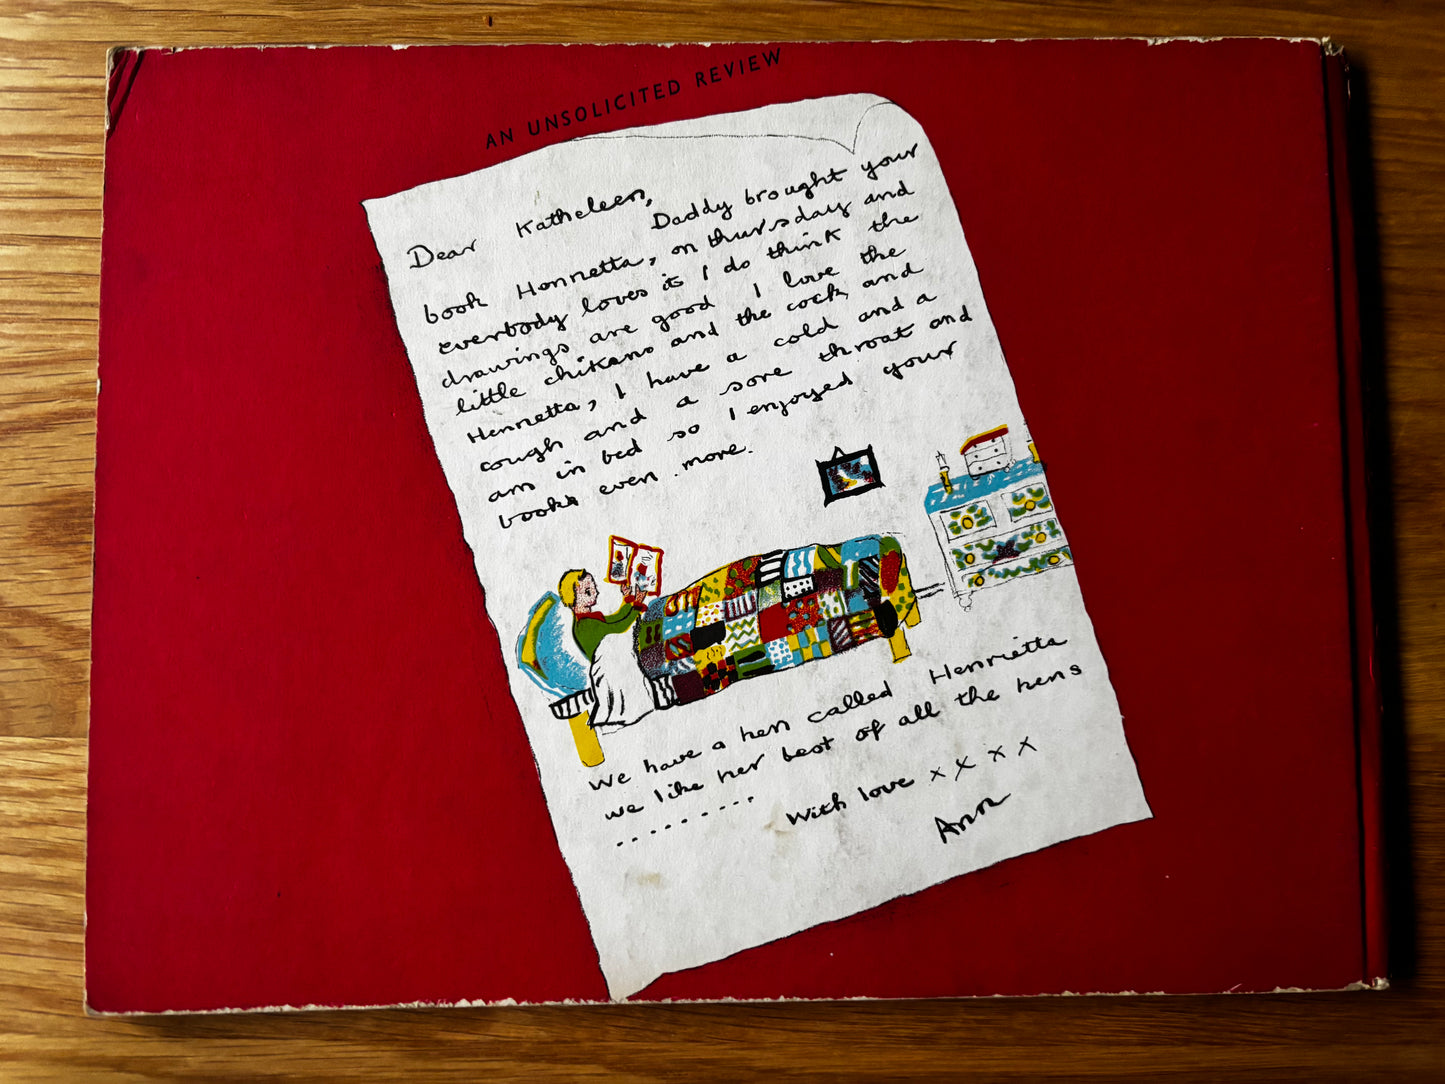 AN UNSOLICITED REVIEW
Dear Katheleen,
Daddy brought your
book Henrietta, on thursday and
everbody loves it I do think the
drawings are good I love the
little chikens and the cock and
Henrietta, I have a cold and a
cough and a sore throat and
am in bed so I enjoyed your
book even more.
We have a hen called Henrietta
we like her best of all the hens
.........
With love x x x x
Ann